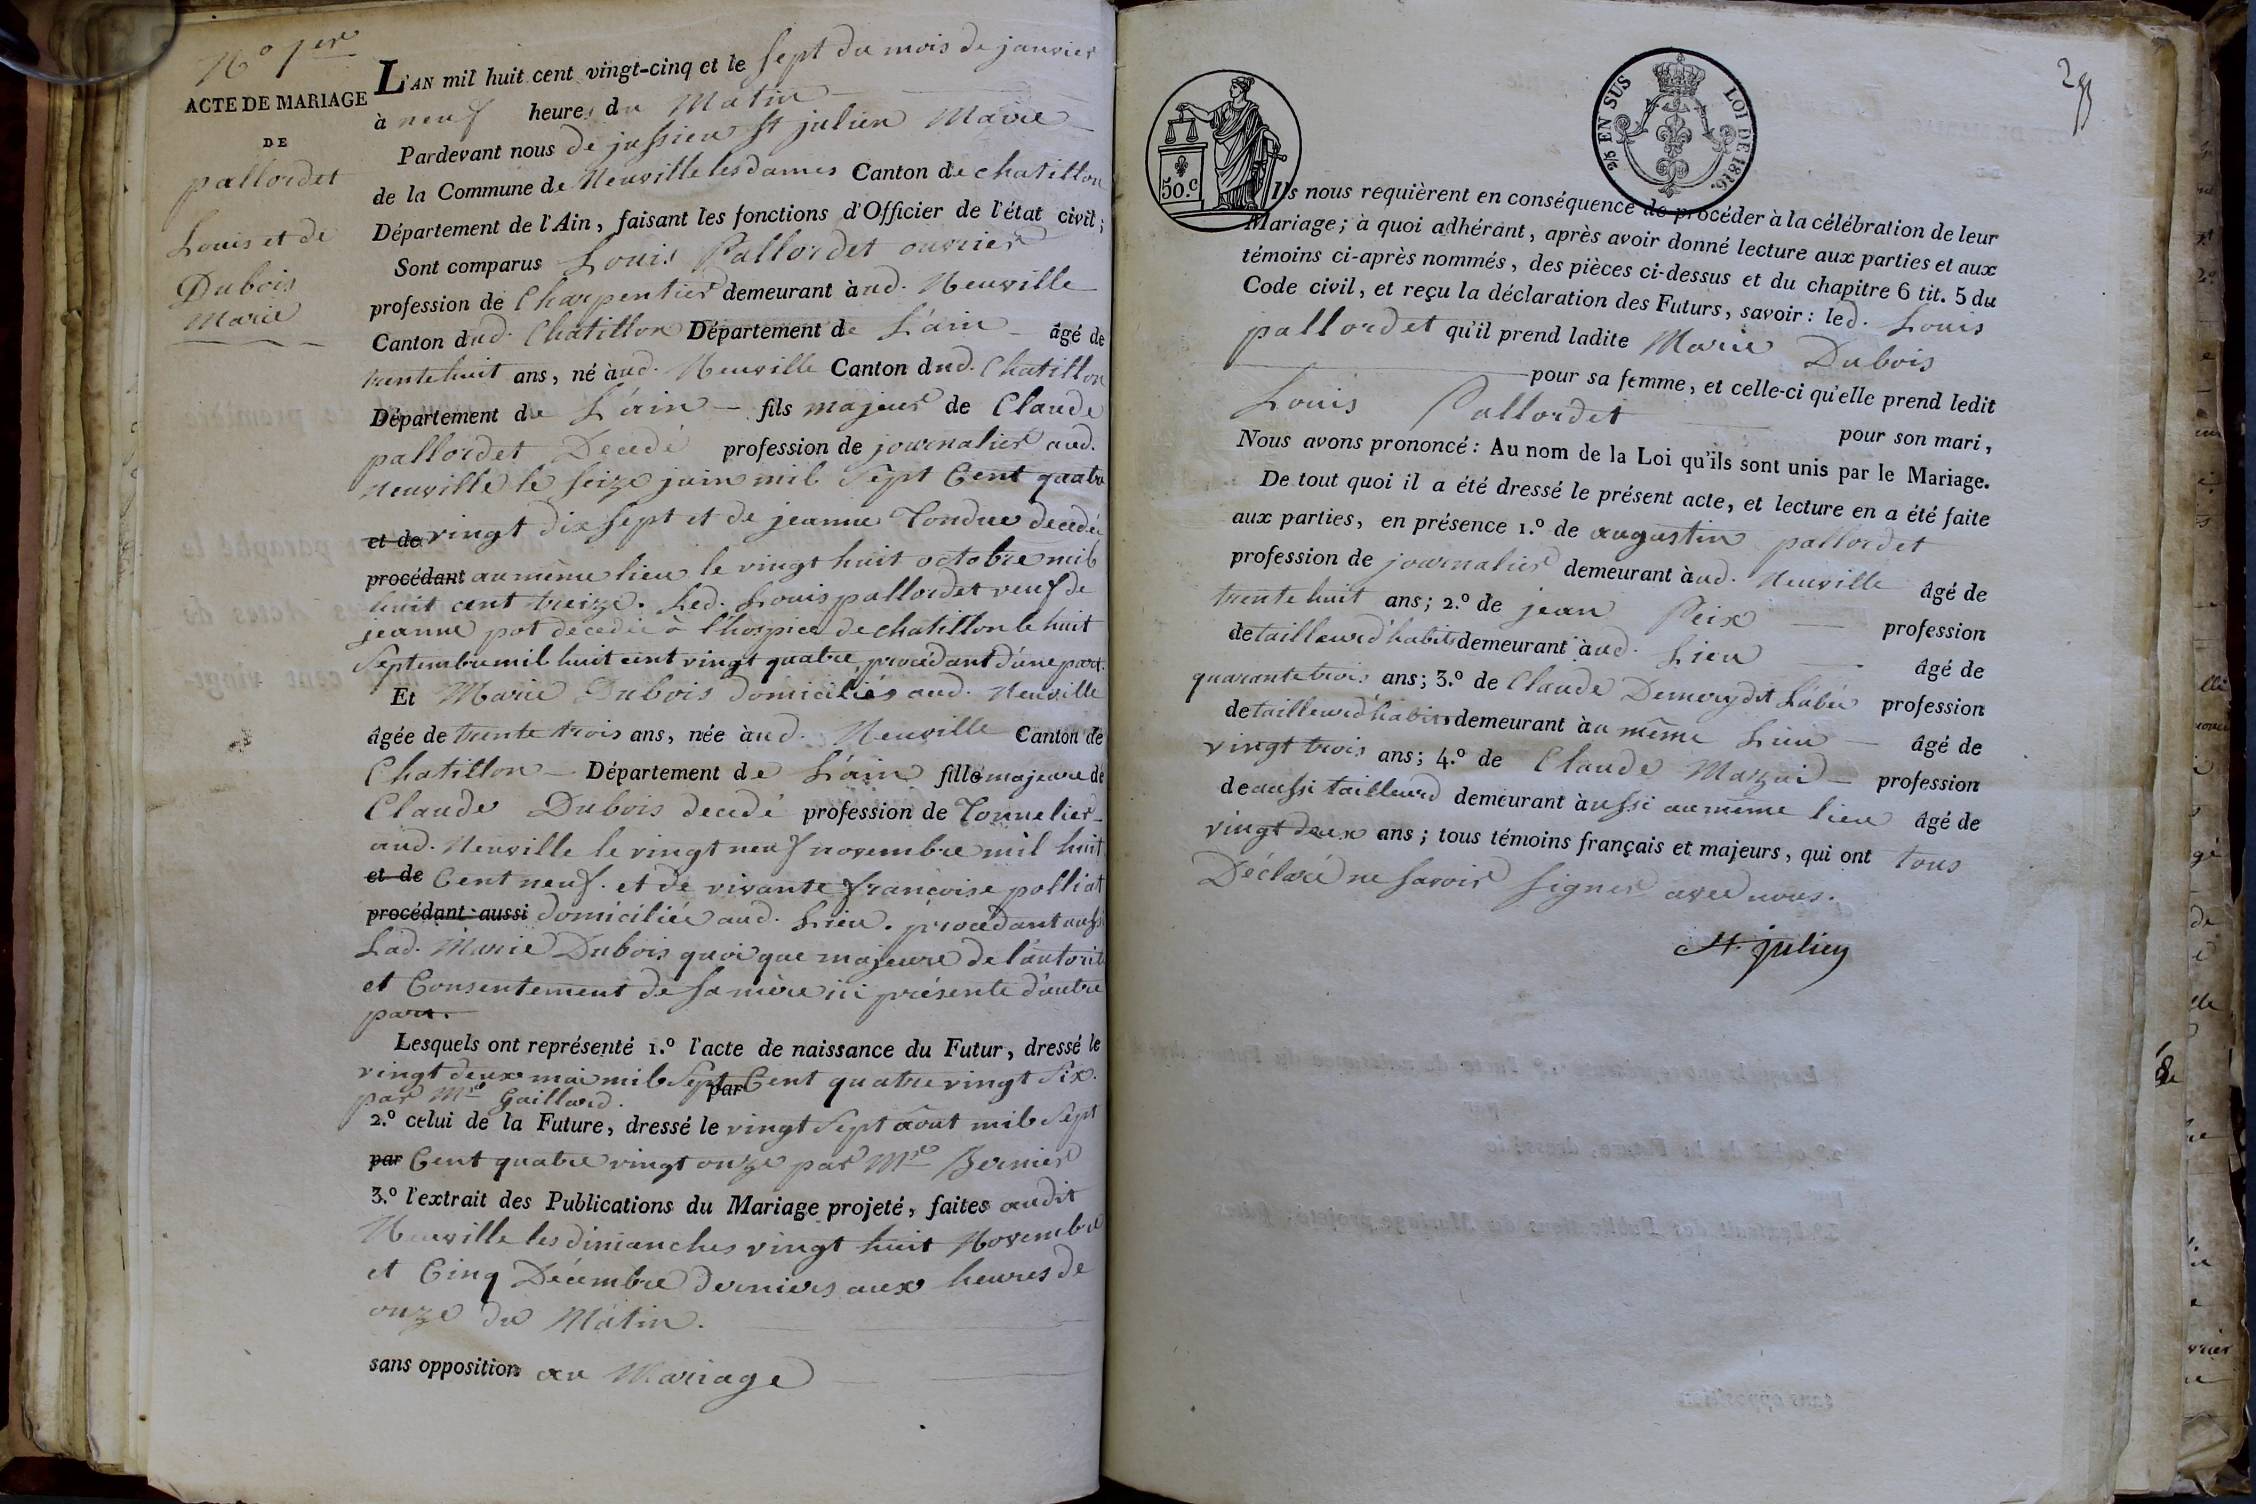 N.° 1er
ACTE DE MARIAGE
DE
pallordet
Louis et de
Dubois
Marie
L'AN mil huit cent vingt-cinq et le sept du mois de janvier
à neuf heures du Matin
Pardevant nous de jussieu St julien Maire
de la Commune de Neuville les dames Canton de chatillon
Département de l'Ain, faisant les fonctions d'Officier de l'état civil;
Sont comparus Louis Pallordet ouvrier
profession de Charpentier demeurant à ud. Neuville
Canton dud. Chatillon Département de L'ain âgé de
trente huit ans, né à ud. Neuville Canton dud. Chatillon
Département de L'ain fils majeur de Claude
pallordet Decedé profession de journalier aud.
Neuville le seize juin mil sept Cent quatre
et de vingt dix sept et de jeanne Tondue decedée
procédant au même lieu le vingt huit octobre mil
huit cent treize. Led. Louis pallordet veuf de
jeanne pot decedée à l'hospice de chatillon le huit
Septembre mil huit cent vingt quatre, procédant d'une part.
Et Marie Dubois domiciliés aud. Neuville
âgée de trente trois ans, née à ud. Neuville Canton de
Chatillon Département de L'ain fille majeure de
Claude Dubois decedé profession de Tonnelier
aud. Neuville le vingt neuf novembre mil huit
et de Cent neuf. et de vivante françoise polliat
procédant aussi domiciliée aud. Lieu. procédant aussi
Lad. Marie Dubois quoique majeure de l'autorité
et Consentement de sa mère ici présente d'autre
part.
Lesquels ont représenté 1.° l'acte de naissance du Futur, dressé le
vingt deux mai mil Sept par Cent quatre vingt Six.
par Mre Gaillard.
2.° celui de la Future, dressé le vingt Sept août mil Sept
par Cent quatre vingt onze par Mre Bernier
3.° l'extrait des Publications du Mariage projeté, faites audit
Neuville les dimanches vingt huit Novembre
et Cinq Décembre derniers aux heures de
onze du Matin.
sans opposition au Mariage
50.c
2/5 EN SUS LOI DE 1816.
Ils nous requièrent en conséquence de procéder à la célébration de leur
Mariage; à quoi adhérant, après avoir donné lecture aux parties et aux
témoins ci-après nommés, des pièces ci-dessus et du chapitre 6 tit. 5 du
Code civil, et reçu la déclaration des Futurs, savoir: led. Louis
pallordet qu'il prend ladite Marie Dubois
pour sa femme, et celle-ci qu'elle prend ledit
Louis Pallordet pour son mari,
Nous avons prononcé: Au nom de la Loi qu'ils sont unis par le Mariage.
De tout quoi il a été dressé le présent acte, et lecture en a été faite
aux parties, en présence 1.° de augustin pallordet
profession de journalier demeurant à ud. Neuville âgé de
trente huit ans; 2.° de jean Peix profession
de tailleur d'habits demeurant à ud. Lieu âgé de
quarante trois ans; 3.° de Claude Demery dit Labée profession
de tailleur d'habits demeurant àu même Lieu âgé de
vingt trois ans; 4.° de Claude profession
de aussi tailleurd demeurant àussi au même lieu âgé de
vingt deux ans; tous témoins français et majeurs, qui ont tous
Déclaré ne savoir signer avec nous.
St. julien